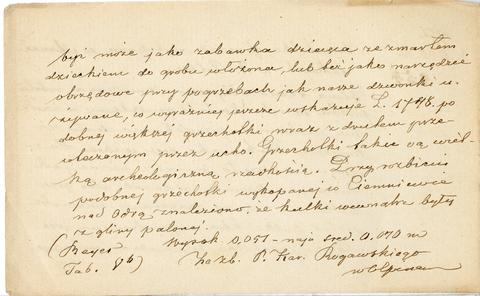 być może jako zabawka dziecięca ze zmarłem
dzieckiem do grobu włożona, lub też jako narzędzie
obrzędowe przy pogrzebach jak nasze dzwonki u-
żywane, co wyraźniej jeszcze wskazuje L. 1748. po
dobnej większej grzechotki wraz z drutem prze-
wleczonym przez ucho. Grzechotki takie są wiel-
ką archeologiczną rzadkością. Przy rozbiciu
podobnej grzechotki wykopanej w
nad Odrą znaleziono, że kulki wewnątrz były
z gliny palonej.
(Beyer Wysok 0,051 - najw sred. 0.070 m
Tab. Ze zb. P. Kar. Rogawskiego
w